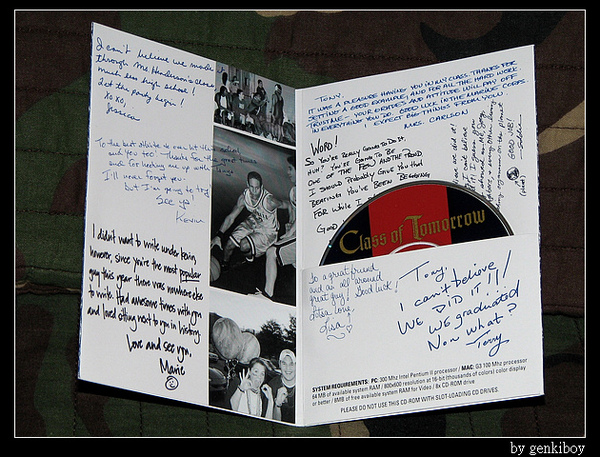 I can't believe we made it
through Ms. Henderson's class
much less high school!
Let the party begin!
XOXO,
Jessica
To the best
and you too! Thanks for the great times
and for hooking me up with Tanya
I'll never forget you.
but I'm going to try
See ya
KEVIN
I didn't want to write under Kevin,
however since you're the most popular
guy this year there was nowhere else
to write. Had awesome times with you
and loved sitting next to you in history.
Love and see you,
Marie
TONY,
IT WAS A PLEASURE HAVING YOU IN MY CLASS. THANKS FOR
SETTING A GOOD EXAMPLE, AND FOR ALL THE HARD WORK.
TRUST ME - YOUR GRADES AND ATTITUDE WILL PAY OFF
IN EVERYTHING YOU DO. GOOD LUCK IN THE MARINE CORPS.
EXPECT BIG THINGS FROM YOU.
MRS. CARLSON
WORD!
SO YOU'RE REALLY GOING TO DO IT,
HUH? YOU'RE GOING TO BE
ONE OF THE FEW AND THE PROUD
I SHOULD PROBABLY GIVE YOU THAT
BEATING YOU'VE BEEN BEGGING
FOR WHILE I
GOOD
GOOD JOB!
Class of Tomorrow
To a great friend
and an all around
great guy! Good luck!
Lisa Love,
Lisa
Tony,
I can't believe
WE DID IT!!
WE graduated
Now what?
Terry
SYSTEM REQUIREMENTS: PC: 300 Mhz Intel Pentium II processor / MAC: G3 100 Mhz processor
64 MB of available system RAM / 800x600 resolution at 16-bit (thousands of colors) color display
or better / 8MB of free available system RAM for Video / 8x CD-ROM drive
PLEASE DO NOT USE THIS CD-ROM WITH SLOT-LOADING CD DRIVES.
by genkiboy